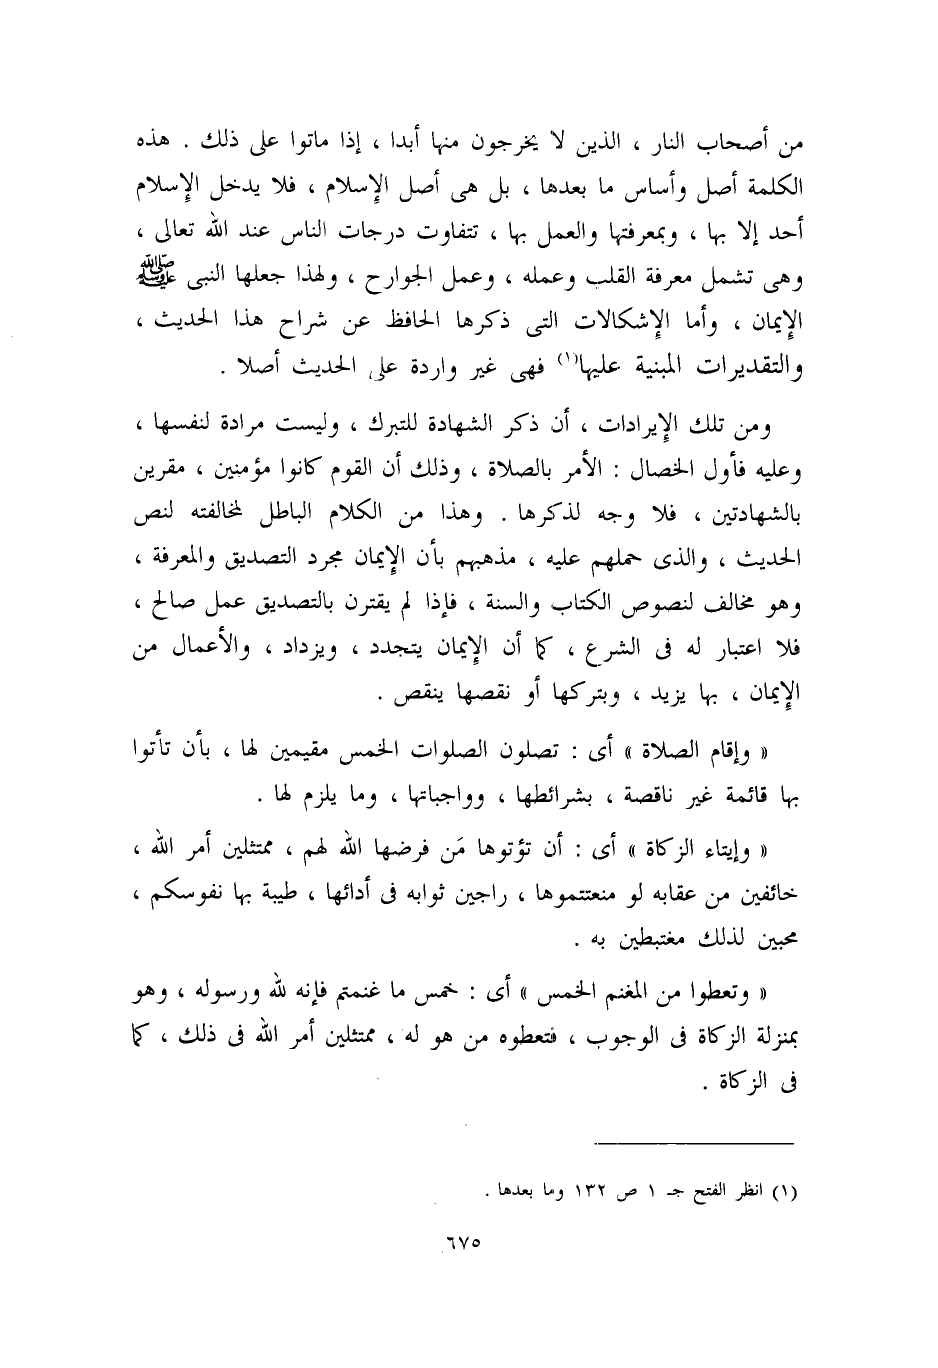 من أصحاب النار ، الذين لا يخرجون منها أبدا ، إذا ماتوا على ذلك . هذه
الكلمة أصل وأساس ما بعدها ، بل هى أصل الإسلام ، فلا يدخل الإسلام
أحد إلا بها ، وبمعرفتها والعمل بها ، تتفاوت درجات الناس عند الله تعالى ،
وهى تشمل معرفة القلب وعمله ، وعمل الجوارح ، ولهذا جعلها النبى ﷺ
الإيمان ، وأما الإشكالات التى ذكرها الحافظ عن شراح هذا الحديث ،
والتقديرات المبنية عليها(١) فهى غير واردة على الحديث أصلا .
ومن تلك الإيرادات ، أن ذكر الشهادة للتبرك ، وليست مرادة لنفسها ،
وعليه فأول الخصال : الأمر بالصلاة ، وذلك أن القوم كانوا مؤمنين ، مقرين
بالشهادتين ، فلا وجه لذكرها . وهذا من الكلام الباطل لمخالفته لنص
الحديث ، والذى حملهم عليه ، مذهبهم بأن الإيمان مجرد التصديق والمعرفة ،
وهو مخالف لنصوص الكتاب والسنة ، فإذا لم يقترن بالتصديق عمل صالح ،
فلا اعتبار له فى الشرع ، كما أن الإيمان يتجدد ، ويزداد ، والأعمال من
الإيمان ، بها يزيد ، وبتركها أو نقصها ينقص .
« وإقام الصلاة » أى : تصلون الصلوات الخمس مقيمين لها ، بأن تأتوا
بها قائمة غير ناقصة ، بشرائطها ، وواجباتها ، وما يلزم لها .
« وإيتاء الزكاة » أى : أن تؤتوها مَن فرضها الله لهم ، ممتثلين أمر الله ،
خائفين من عقابه لو منعتموها ، راجين ثوابه فى أدائها ، طيبة بها نفوسكم ،
محبين لذلك مغتبطين به .
« وتعطوا من المغنم الخمس » أى : خمس ما غنمتم فإنه لله ورسوله ، وهو
بمنزلة الزكاة فى الوجوب ، فتعطوه من هو له ، ممتثلين أمر الله فى ذلك ، كما
فى الزكاة .
(١) انظر الفتح جـ ١ ص ١٣٢ وما بعدها .
٦٧٥